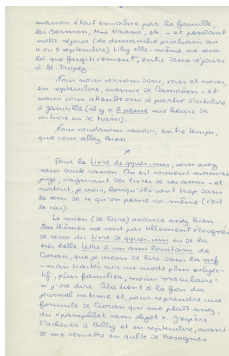 maison étant envahie par la famille,
les Bermon, Mme                etc. — et pendant
notre séjour (de dimanche prochain au
4 ou 5 septembre) Lily elle-même ne sera
là que fugitivement, entre deux séjours
à St. Tropez.
Nous nous verrons donc, vous et nous,
en septembre, avenue de Camoëns — et
nous vous attendrons à partir d'octobre
à Janville (il y a à peine une heure de
voiture ou de train).
Nous voudrions savoir, entre temps,
que vous allez bien.
Pour le Livre de               , vous avez
sans doute raison. On est souvent mauvais
juge, s'agissant des livres de ses amis — et
surtout, je crois, lorsqu'ils vont trop dans
le sens de ce qu'on pense soi-même (c'est
le cas).
Le mien (de livre) avance assez bien.
Ses thèmes ne sont pas tellement éloignés
de ceux du Livre de               ou de la
très belle Lettre à un ami lointain de
Cioran, que je viens de lire dans la nrf
— mais traités sur un mode plus subjec-
tif, plus familier, moins "oraculaire"
si j'ose dire. Cela tient à la fois du
journal intime et, pour reprendre une
formule de Cioran qui me plaît assez,
du "pamphlet sans objet". J'espère
l'achever à Gilly et en septembre, avant
de me remettre en quête de besognes